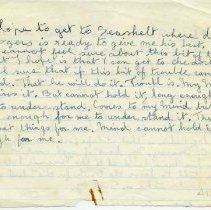 hope to get to Seashelt where d
is ready to give me his best,
cannot feel sure about this bit, I
I hope is that I can get to the do
sure that if this bit of trouble can
That he will do it. Trouble is, my m
it. But cannot hold it, long enoug
to understand. Comes to my mind but
enough for me to understand it. Th
things for me. Mind cannot hold i
for me.